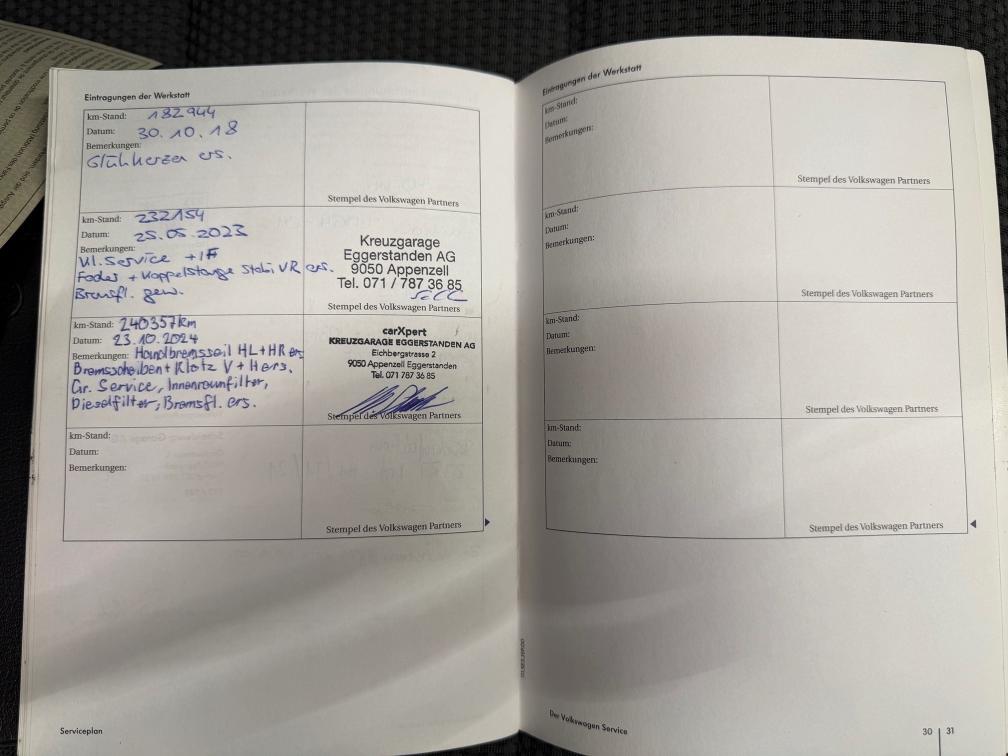 Eintragungen der Werkstatt
km-Stand: 182944
Datum: 30.10.18
Bemerkungen:
Glühkerzen ers.
Stempel des Volkswagen Partners
km-Stand: 232154
Datum: 25.05.2023
Bemerkungen:
Kl. Service +
Feder + Koppelstange Stabi VR ers.
Bremsfl. gew.
Kreuzgarage
Eggerstanden AG
9050 Appenzell
Tel. 071 / 787 36 85
Stempel des Volkswagen Partners
km-Stand: 240357km
Datum: 23.10.2024
Bemerkungen: Handbremsseil HL + HR ers
Bremsscheiben + Klotz V + H ers.
Gr. Service, Innenraumfilter,
Dieselfilter, Bremsfl. ers.
carXpert
KREUZGARAGE EGGERSTANDEN AG
Eichbergstrasse 2
9050 Appenzell Eggerstanden
Tel. 071 787 36 85
Stempel des Volkswagen Partners
km-Stand:
Datum:
Bemerkungen:
Stempel des Volkswagen Partners
Serviceplan
Eintragungen der Werkstatt
km-Stand:
Datum:
Bemerkungen:
Stempel des Volkswagen Partners
km-Stand:
Datum:
Bemerkungen:
Stempel des Volkswagen Partners
km-Stand:
Datum:
Bemerkungen:
Stempel des Volkswagen Partners
km-Stand:
Datum:
Bemerkungen:
Stempel des Volkswagen Partners
Der Volkswagen Service
30 | 31